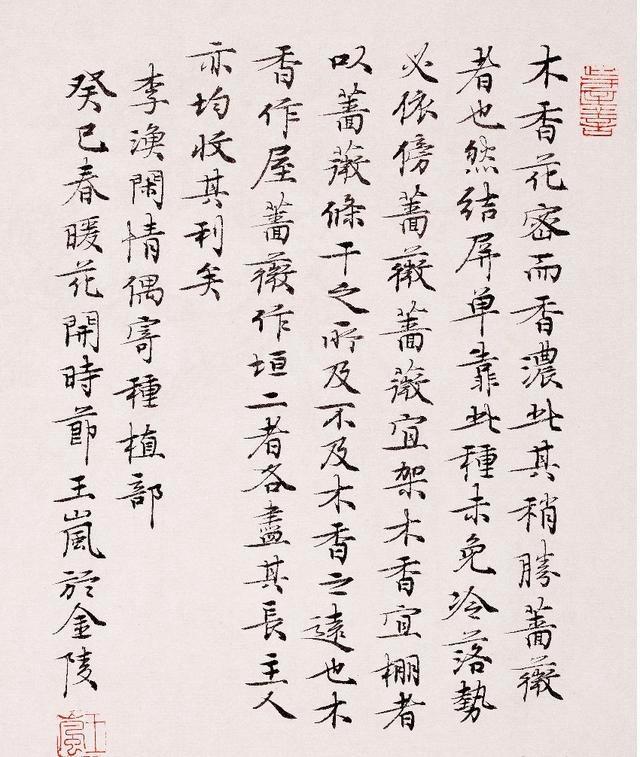 木香花密而香濃此其稍勝薔薇
者也然结屏单靠此種未免冷落勢
必依傍薔薇薔薇宜架木香宜棚者
以薔薇條干之所及不及木香之遠也木
香作屋薔薇作垣二者各盡其長主人
亦均收其利矣
李漁閑情偶寄種植部
癸巳春暖花開時節王嵐於金陵
王嵐